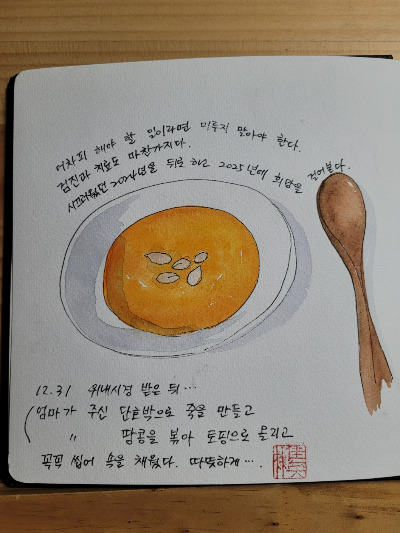 어차피 해야 할 일이라면 미루지 말아야 한다.
검진과 치료도 마찬가지다.
시끄러웠던 2024년을 뒤로 하고 2025년에 희망을 걸어본다.
12.31 위내시경 받은 뒤...
(엄마가 주신 단호박으로 죽을 만들고
〃 땅콩을 볶아 토핑으로 올리고
꼭꼭 씹어 속을 채웠다. 따뜻하게....